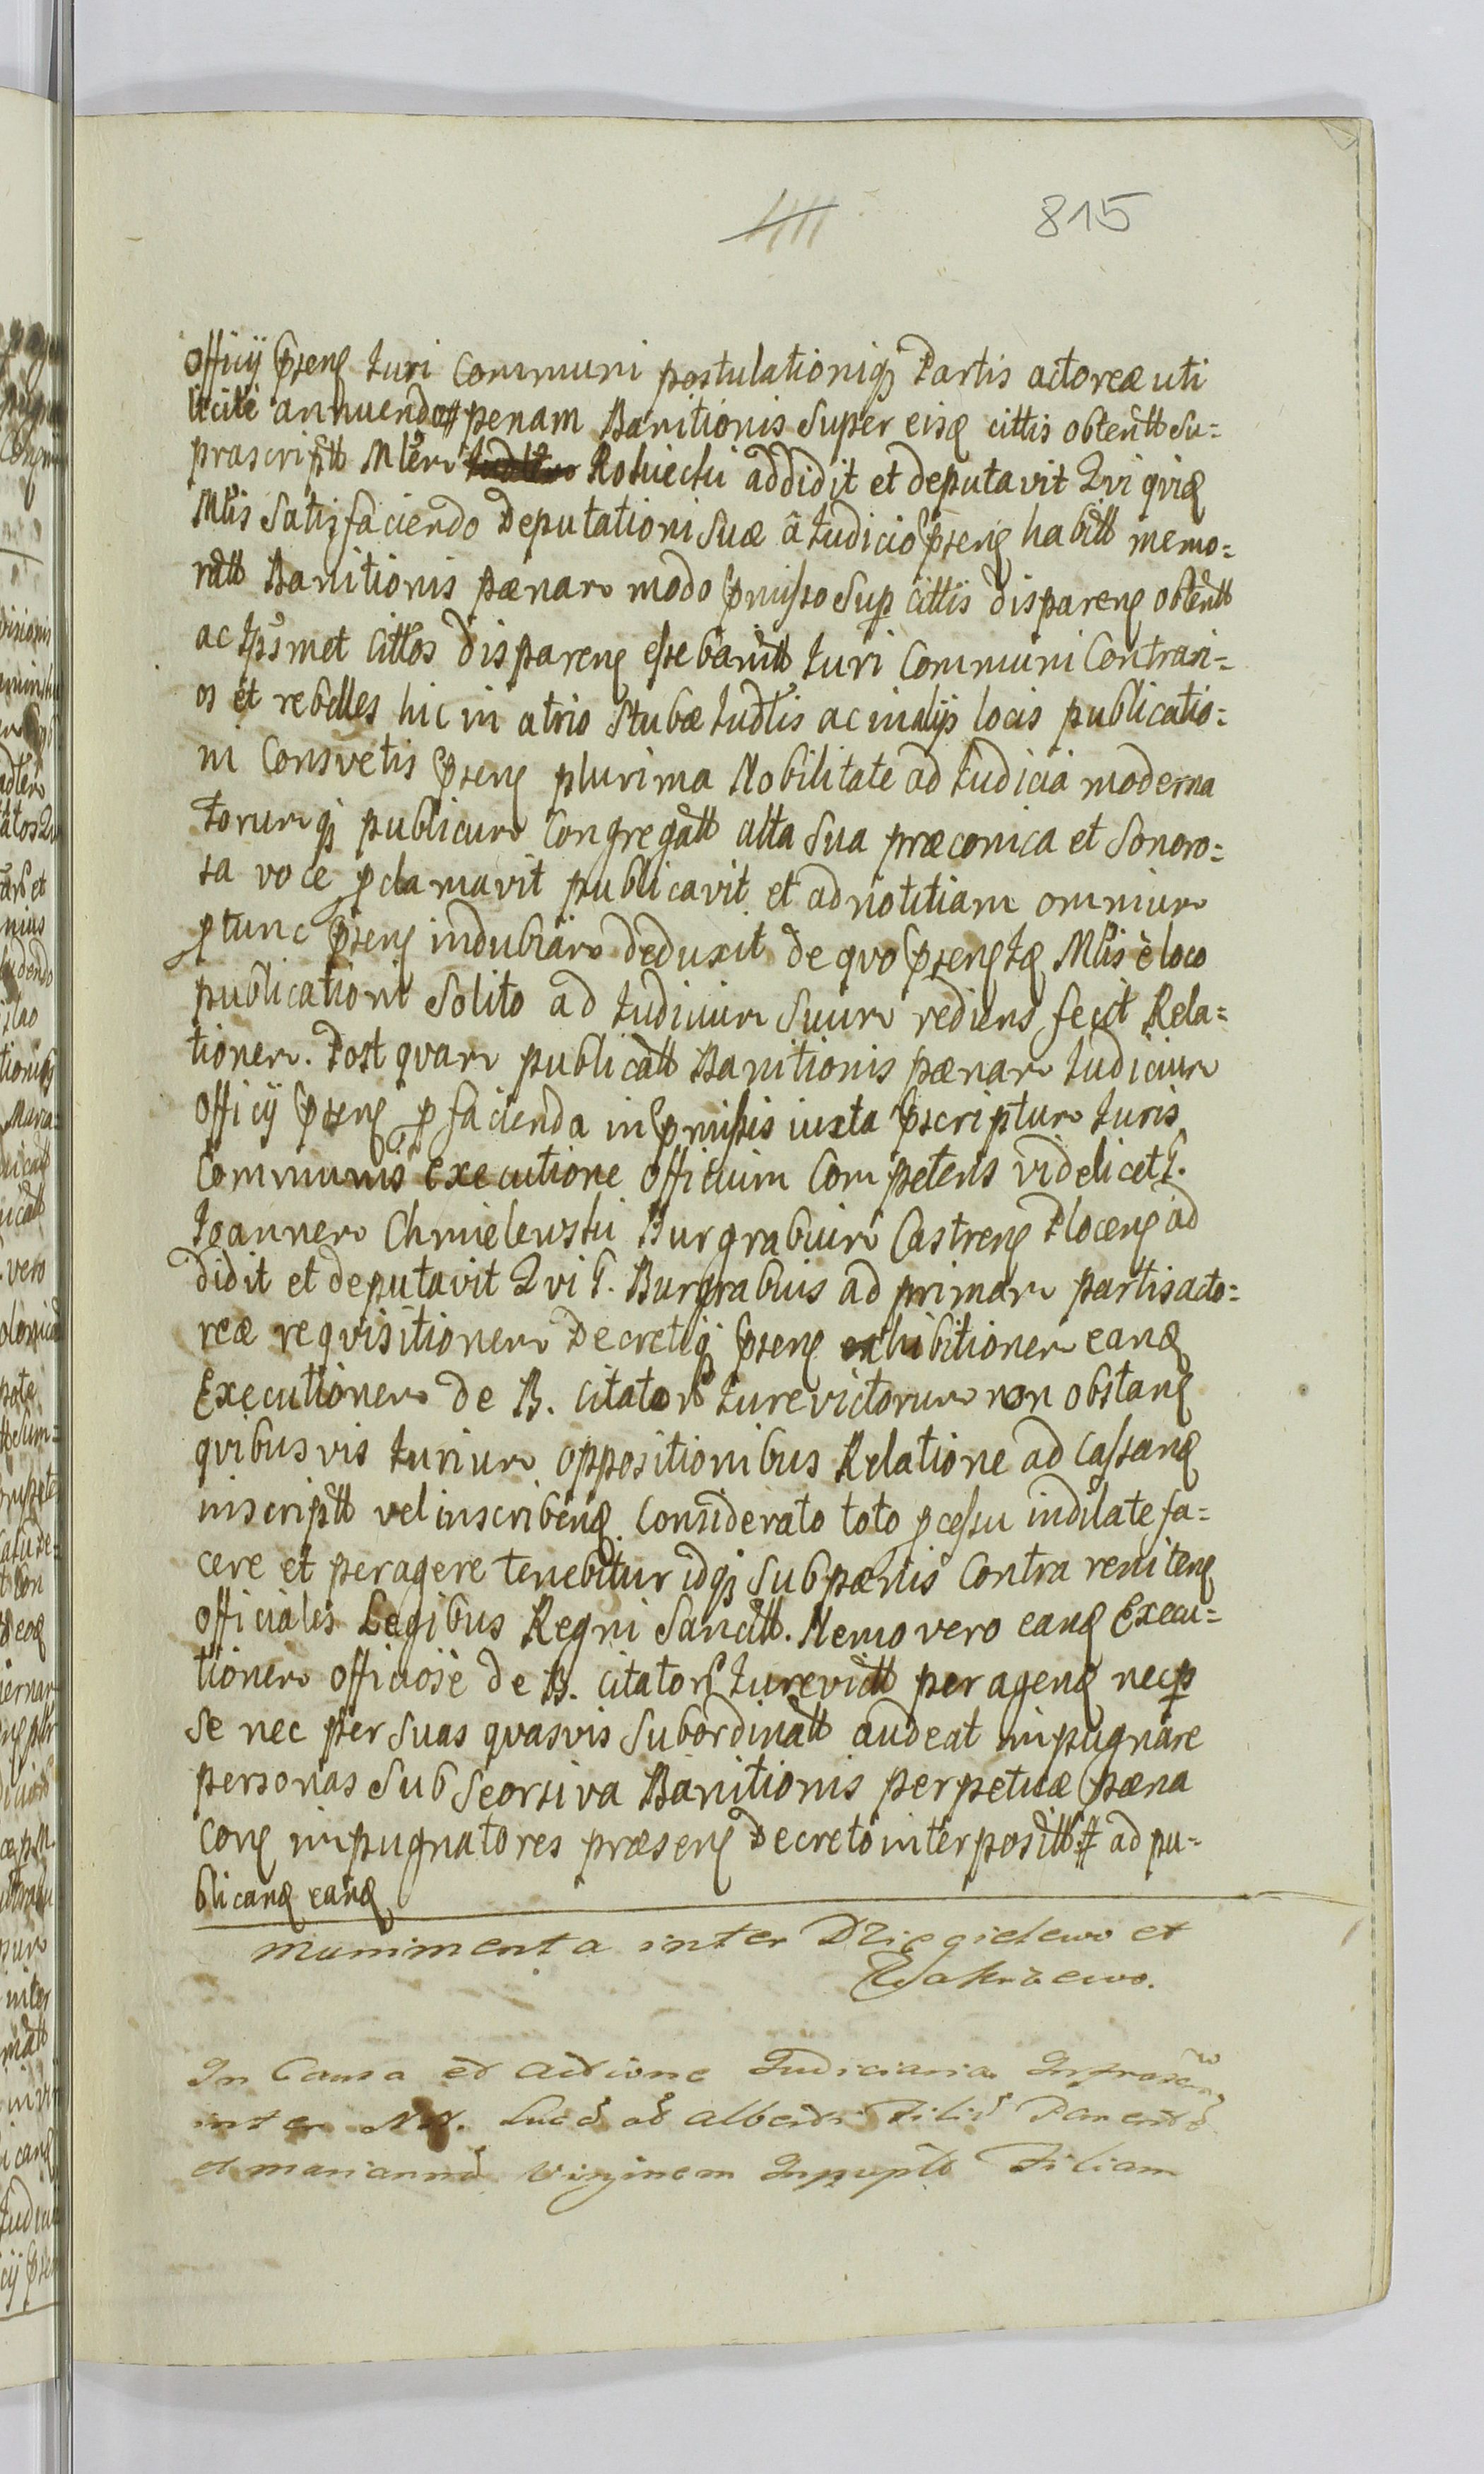 411 815
Officÿ pseng Iuri Communi postulationiq Partis actoreæ uti
licite annuendo penam Banitionis Super eisd cittis obtentt su=
prascriptt Mlem Rohiecki addidit et deputavit Qui quid
Mlis satisfaciendo Deputationi suæ â Iudicio pseng habitt memo=
ratt Banitionis pænam modo pmisso sup cittis dispareng obtentt
ac Ipsmet Cittos dispareng esse banitt Iuri Communi Contrari=
os et rebelles hic in atrio Stubæ Iudlis ac in alÿs locis publicatio=
ni Consvetis pseng plurima Nobilitate ad Iudicia moderna
Forumq publicum Congregatt alta sua præconica et sonoro=
sa voce pclamavit publicavit et ad notitiam omnium
ptunc pseng indubiam deduxit de quo pseng Id Mlis è loco
publicationi solito ad Iudicium suum rediens fecit Rela=
tionem. Post quam publicatt Banitionis pænam Iudicium
Officÿ pseng p facienda in pmissis iuxta pscriptum Iuris
Communis executione Officium Competens videlicet G.
Ioannem Chmielewski Burgrabium Castreng Ploceng ad
didit et deputavit Qui G. Burgrabius ad primam partis acto=
reæ requisitionem Decretiq pseng exhibitionem eand
Executionem de B. citator Iurevictorum non obstang
quibusvis Iurium oppositionibus Relatione ad Cassand
inscriptt vel inscribend Considerato toto pcessu indilate fa=
cere et peragere tenebitur idq sub pænis Contra reniteng
officiales Legibus Regni Sancitt. Nemo vero eand Execu=
tionem officiose de B. citator Iurevictt peragend nec p
se nec per suas quasvis subordinatt audeat impugnare
personas sub seorsiva Banitionis perpetuæ pæna
Cong impugnatores præseng Decreto interpositt ad pu=
blicand eand
Munimenta inter Dziegielewo et
Zakrzewo.
In Causa et Actione Iudiciaria
inter NN. Luc et Albertt Filis
et Mariannā Virginem Filiam